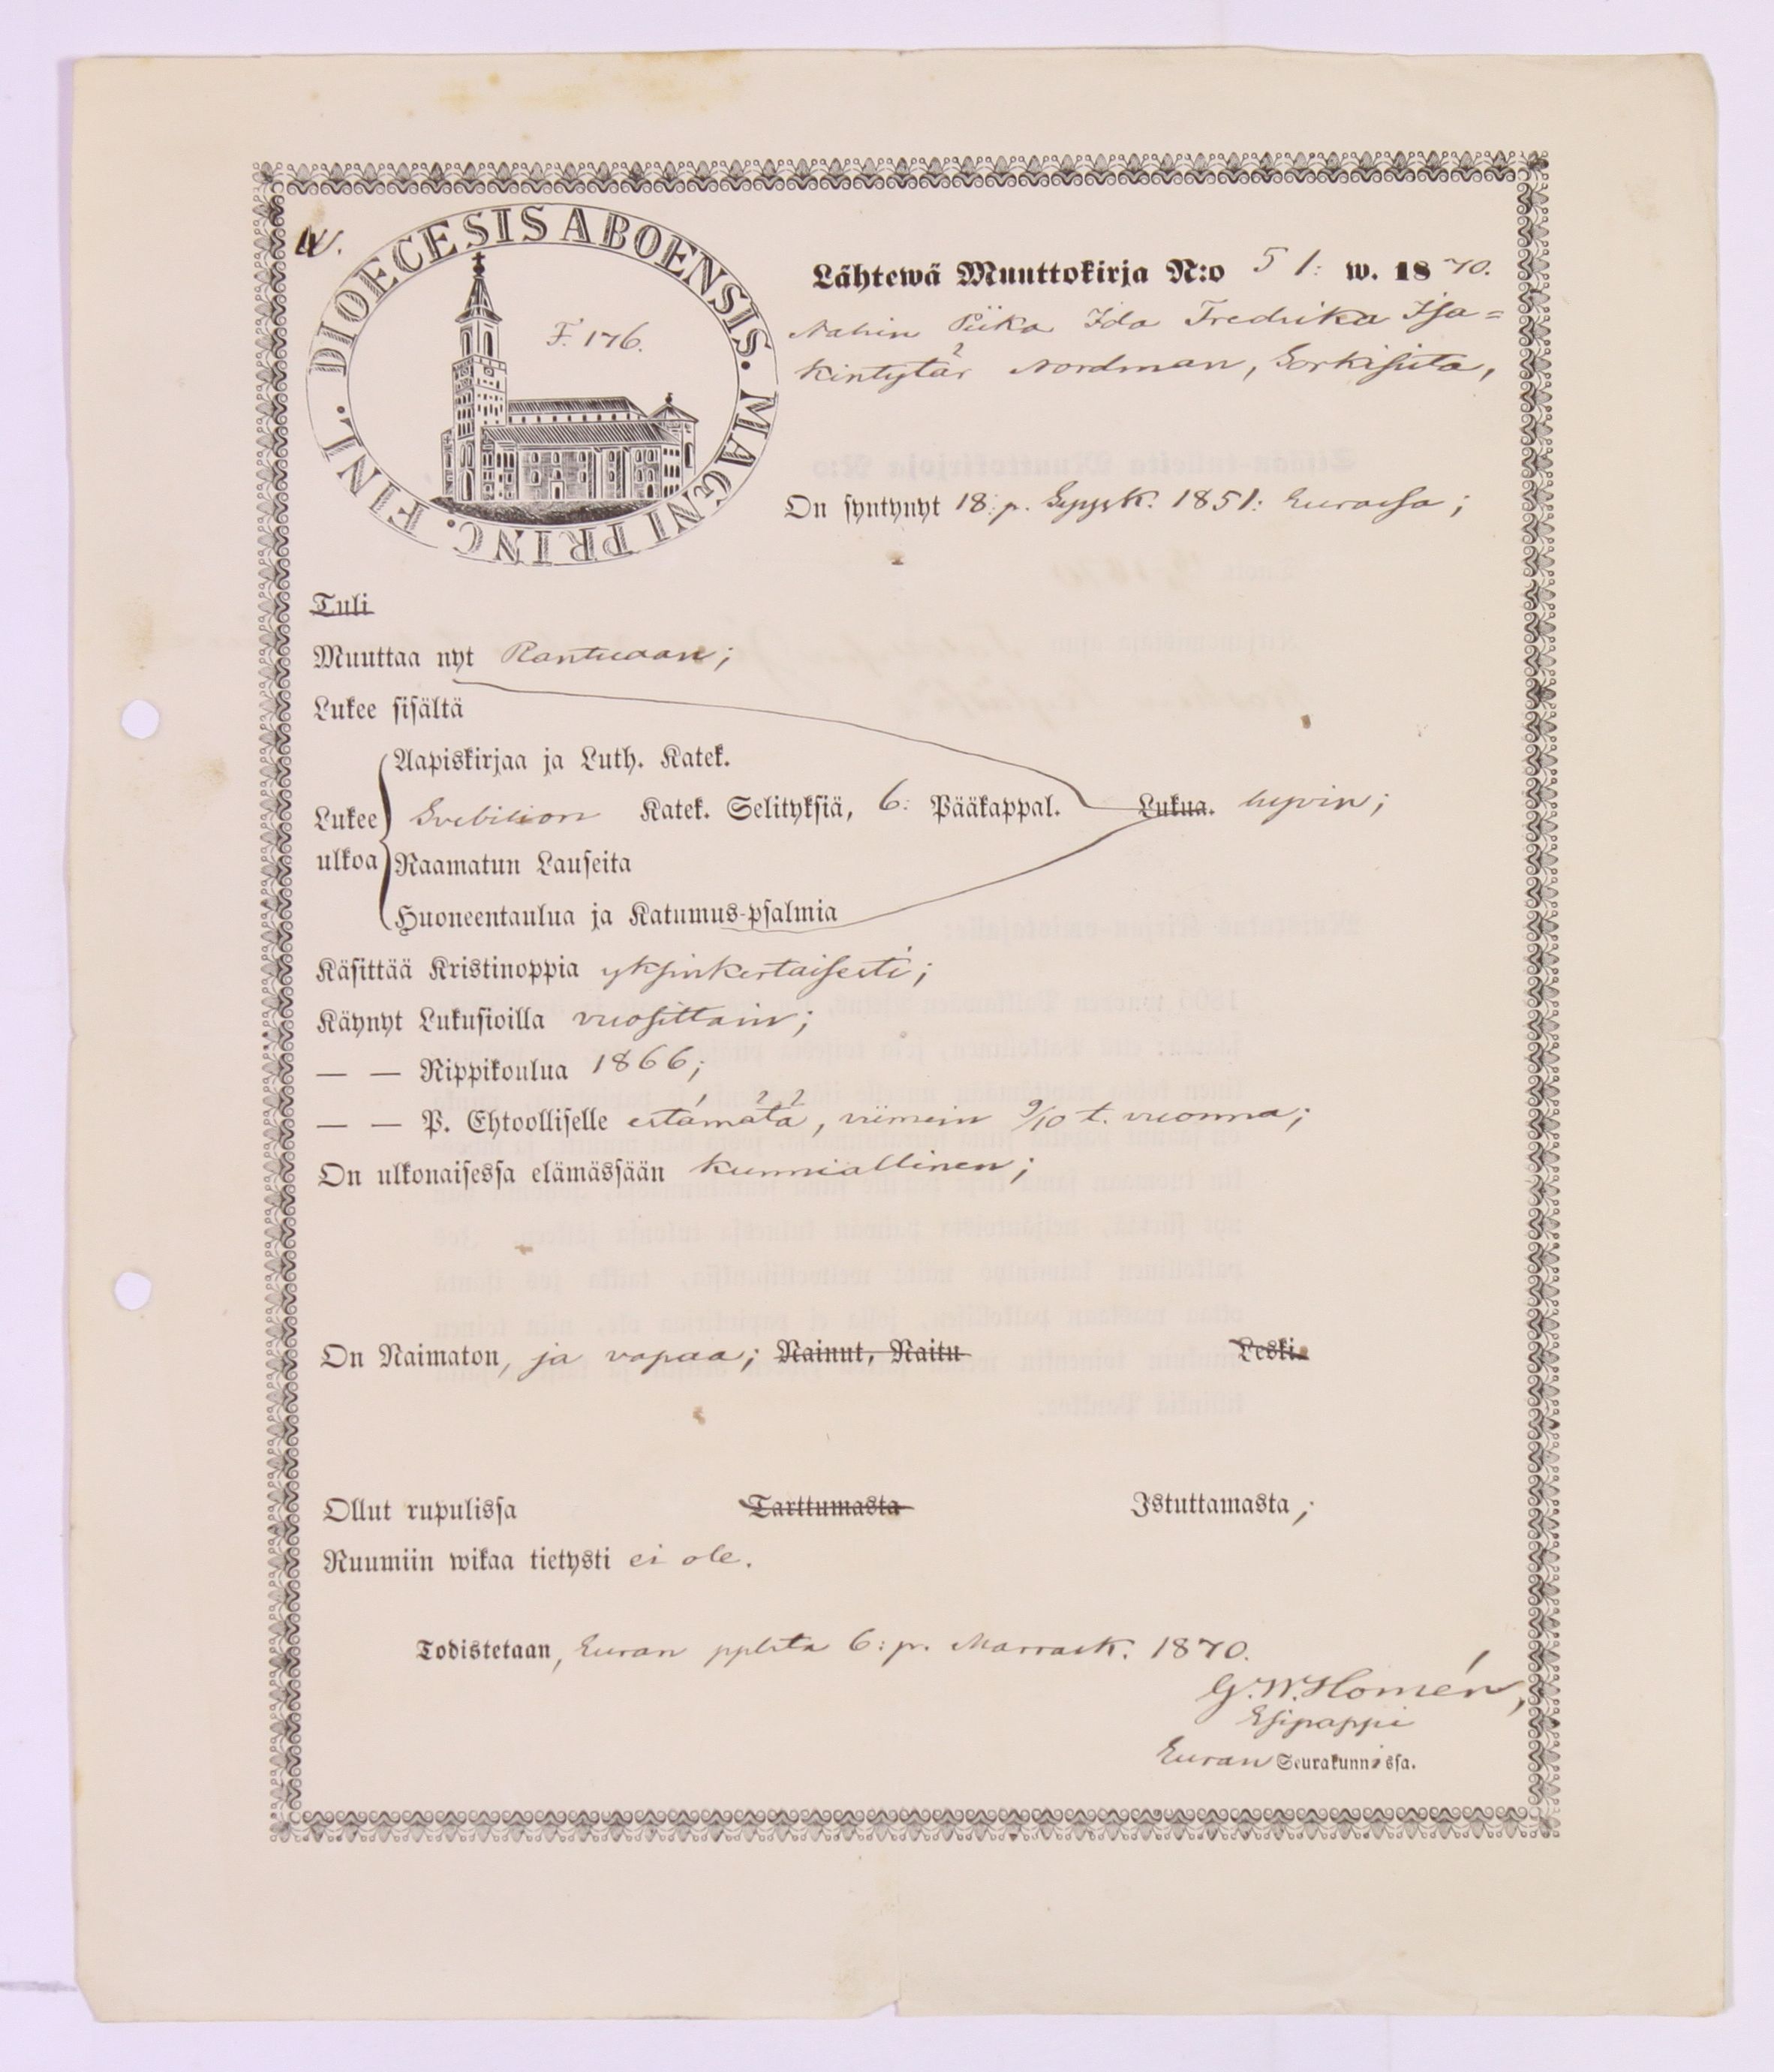 DIOECESIS ABOENSIS. MAGNI PRINC. FINL.
F. 176.
Lähtewä Muuttokirja N:o 51: w. 1870.
Piika Ida Fredrika Isa=
kintytär Nordman, Sorkisista,
On syntynyt 18: p. Syysk. 1851: Eurassa;
Tuli
Muuttaa nyt Rantuaan;
Lukee sisältä
Aapiskirjaa ja Luth. Katek.
Lukee Svebilion Katek. Selityksiä, 6: Pääkappal. Lukua. hyvin;
ulkoa Raamatun Lauseita
Huoneentaulua ja Katumus-psalmia
Käsittää Kristinoppia yksinkertaisesti;
Käynyt Lukusioilla vuosittain;
— — Rippikoulua 1866;
— — P. Ehtoolliselle estämätä, viimein 9/10 t. vuonna;
On ulkonaisessa elämässään kunniallinen;
On Naimaton, ja vapaa; Nainut, Naitu Leski.
Ollut rupulissa Tarttumasta Istuttamasta;
Ruumiin wikaa tietysti ei ole.
Todistetaan, Euran pplsta 6: p. Marrask. 1870.
G. W. Homén,
Esipappi
Euran Seurakunnissa.